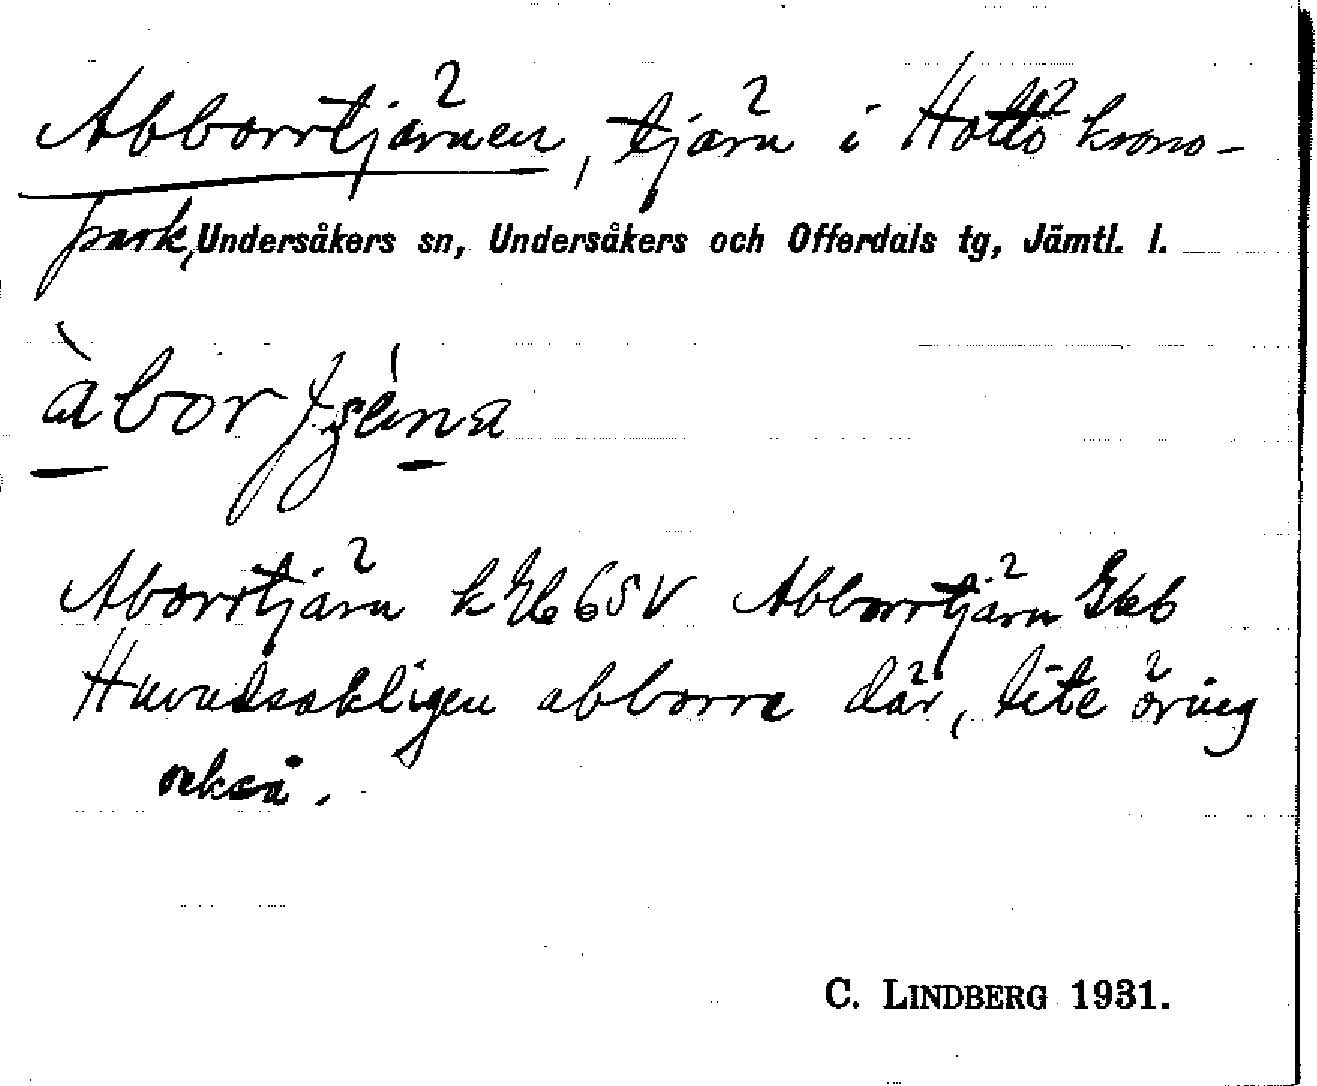 Abborrtjärnen, tjärn i Hottö krono-
park, Undersåkers sn, Undersåkers och Offerdals tg, Jämtl. l.
Aborrtjärn k 65V Abborrtjärn Ekb
Huvudsakligen abborre där, lite öring
också.
C. LINDBERG 1931.